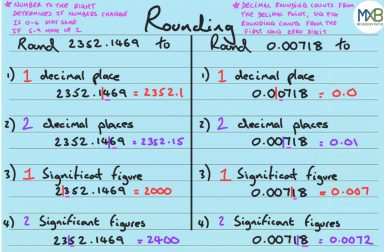 Rounding
* NUMBER TO THE RIGHT
DETERMINES IF NUMBERS CHANGE
IS 0-4 STAY SAME
IF 5-9 MOVE UP 1
* DECIMAL ROUNDING COUNTS FROM
THE DECIMAL POINT, SIG FIG
ROUNDING COUNTS FROM THE
FIRST NON ZERO DIGIT
MXB
Round 2352.1469 to
1) 1 decimal place
2352.1469 = 2352.1
2) 2 decimal places
2352.1469 = 2352.15
3) 1 Significant figure
2352.1469 = 2000
4) 2 Significant figures
2352.1469 = 2400
Round 0.00718 to
1) 1 decimal place
0.00718 = 0.0
2) 2 decimal places
0.00718 = 0.01
3) 1 Significant figure
0.00718 = 0.007
4) 2 Significant figures
0.00718 = 0.0072